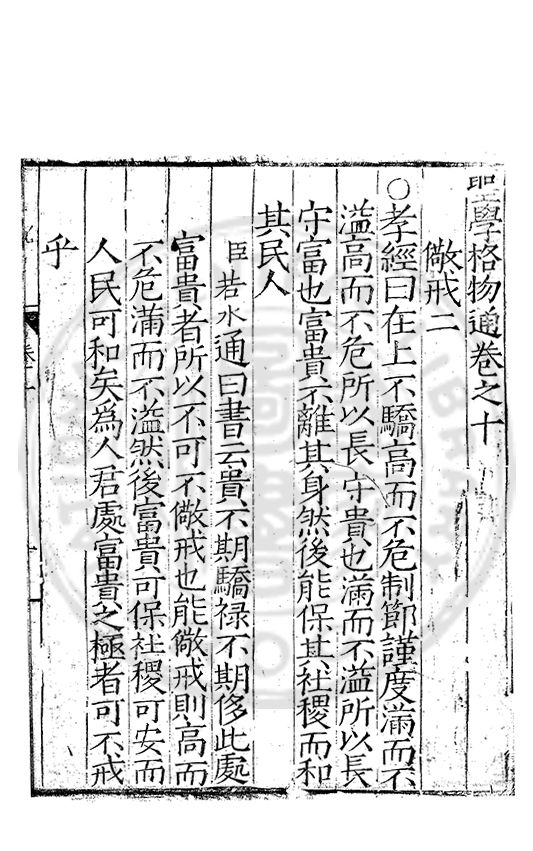 聖學格物通卷之十
儆戒二
○孝經曰在上不驕高而不危制節謹度滿而不
溢高而不危所以長守貴也滿而不溢所以長
守富也富貴不離其身然後能保其社稷而和
其民人
臣若水通曰書云貴不期驕祿不期侈此處
富貴者所以不可不儆戒也能儆戒則高而
不危滿而不溢然後富貴可保社稷可安而
人民可和矣為人君處富貴之極者可不戒
乎